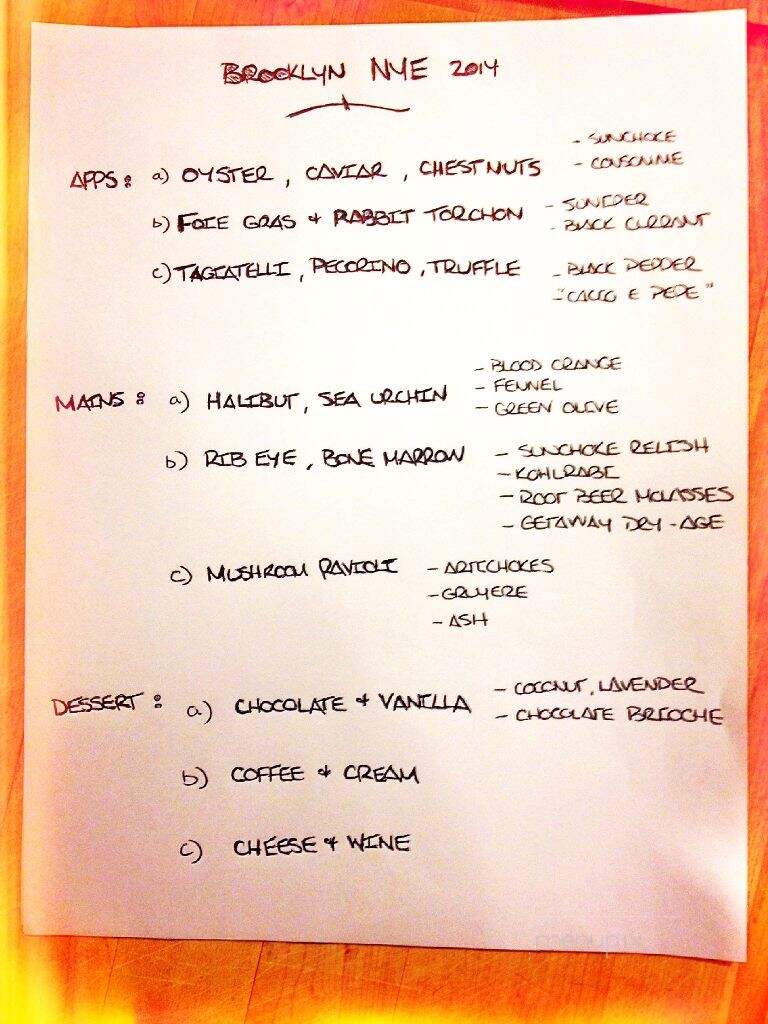 BROOKLYN NYE 2014
APPS: a) OYSTER, CAVIAR, CHESTNUTS
- SUNCHOKE
- CONSOMME
b) FOIE GRAS + RABBIT TORCHON
- JUNIPER
- BLACK CURRANT
c) TAGIATELLI, PECORINO, TRUFFLE
- BLACK PEPPER
- "CACIO E PEPE"
MAINS: a) HALIBUT, SEA URCHIN
- BLOOD ORANGE
- FENNEL
- GREEN OLIVE
b) RIB EYE, BONE MARROW
- SUNCHOKE RELISH
- KOHLRABI
- ROOT BEER MOLASSES
- GETAWAY DRY-AGE
c) MUSHROOM RAVIOLI
- ARTICHOKES
- GRUYERE
- ASH
DESSERT: a) CHOCOLATE + VANILLA
- COCONUT, LAVENDER
- CHOCOLATE BRIOCHE
b) COFFEE + CREAM
c) CHEESE + WINE